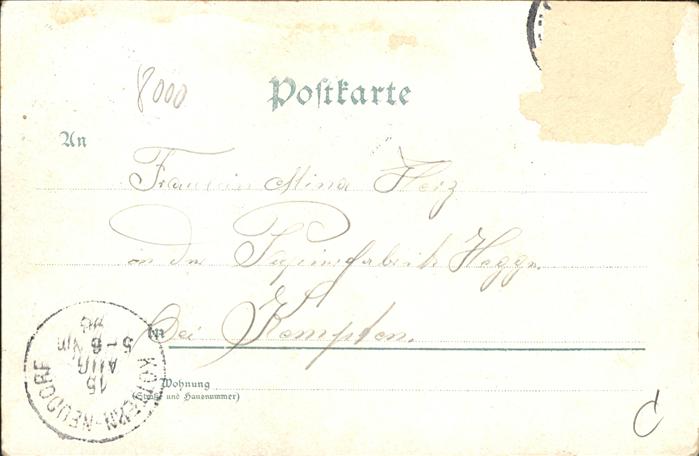 8000
Postkarte
An
Fräulein Mina Herz
in der Papierfabrik Hegge
in bei Kempten.
Wohnung
(Straße und Hausnummer)
KOTTERN-NEUDORF
15
AUG
5-6 Nm
C